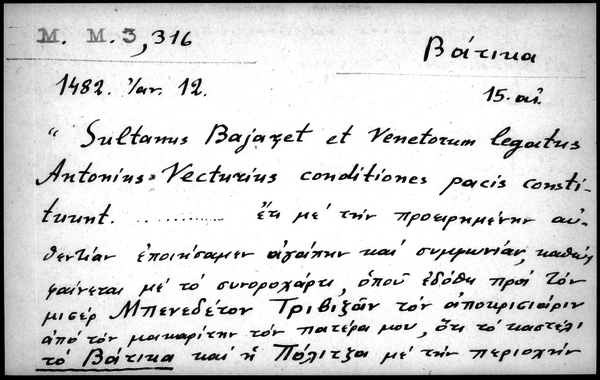 M. M. 3, 316
Βάτικα
1482. Ἰαν. 12.
15. αἰ.
"Sultanus Bajazet et Venetorum legatus
Antonius Vecturius conditiones pacis consti-
tuunt. ............ ἔτι μὲ τὴν προειρημένην αὐ-
θεντίαν ἐποιήσαμεν ἀγάπην καὶ συμφωνίαν, καθὼς
φαίνεται μὲ τὸ συνοροχάρτι, ὁποῦ ἐδόθη πρὸς τὸν
μισὲρ Μπενεδέτον Τριβιζᾶν τὸν ἀποκρισιάριν
ἀπὸ τὸν μακαρίτην τὸν πατέρα μου, ὅτι τὸ καστέλι
τὸ Βάτικα καὶ ἡ Πόλιτζα μὲ τὴν περιοχὴν